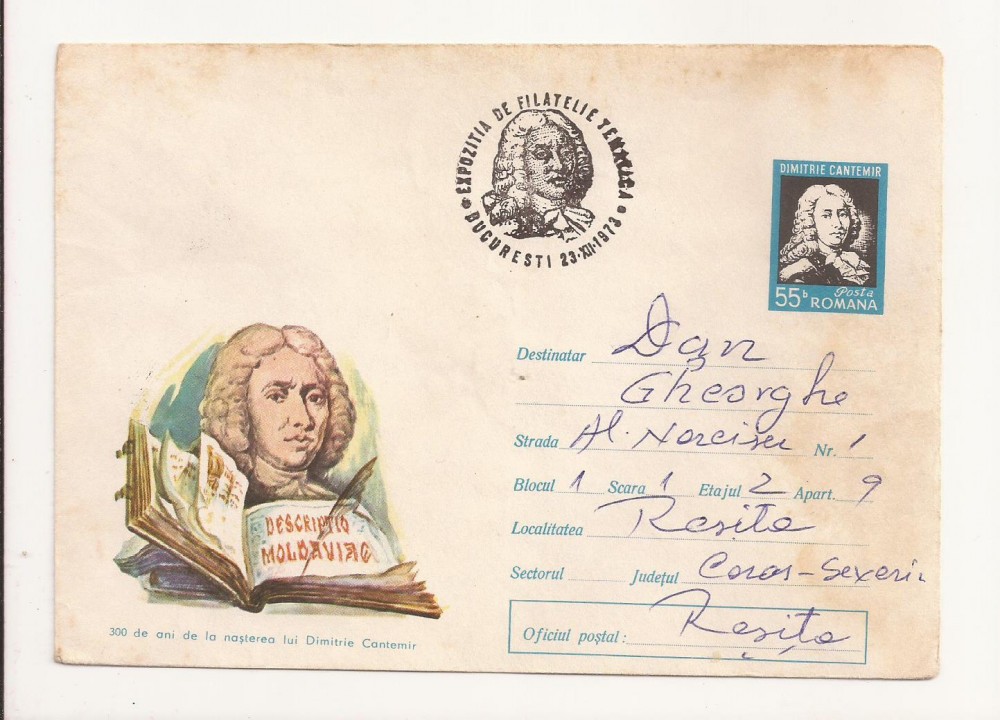 EXPOZITIA DE FILATELIE TEMATICA
BUCURESTI 23·XII·1973
DIMITRIE CANTEMIR
55b Posta
ROMANA
Destinatar Dan
Gheorghe
Strada Al. Narcisei Nr. 1
Blocul 1 Scara 1 Etajul 2 Apart. 9
Localitatea Resita
Sectorul Județul Caras-Severin
Oficiul poștal: Reșița
DESCRIPTIO
MOLDAVIAE
300 de ani de la nașterea lui Dimitrie Cantemir